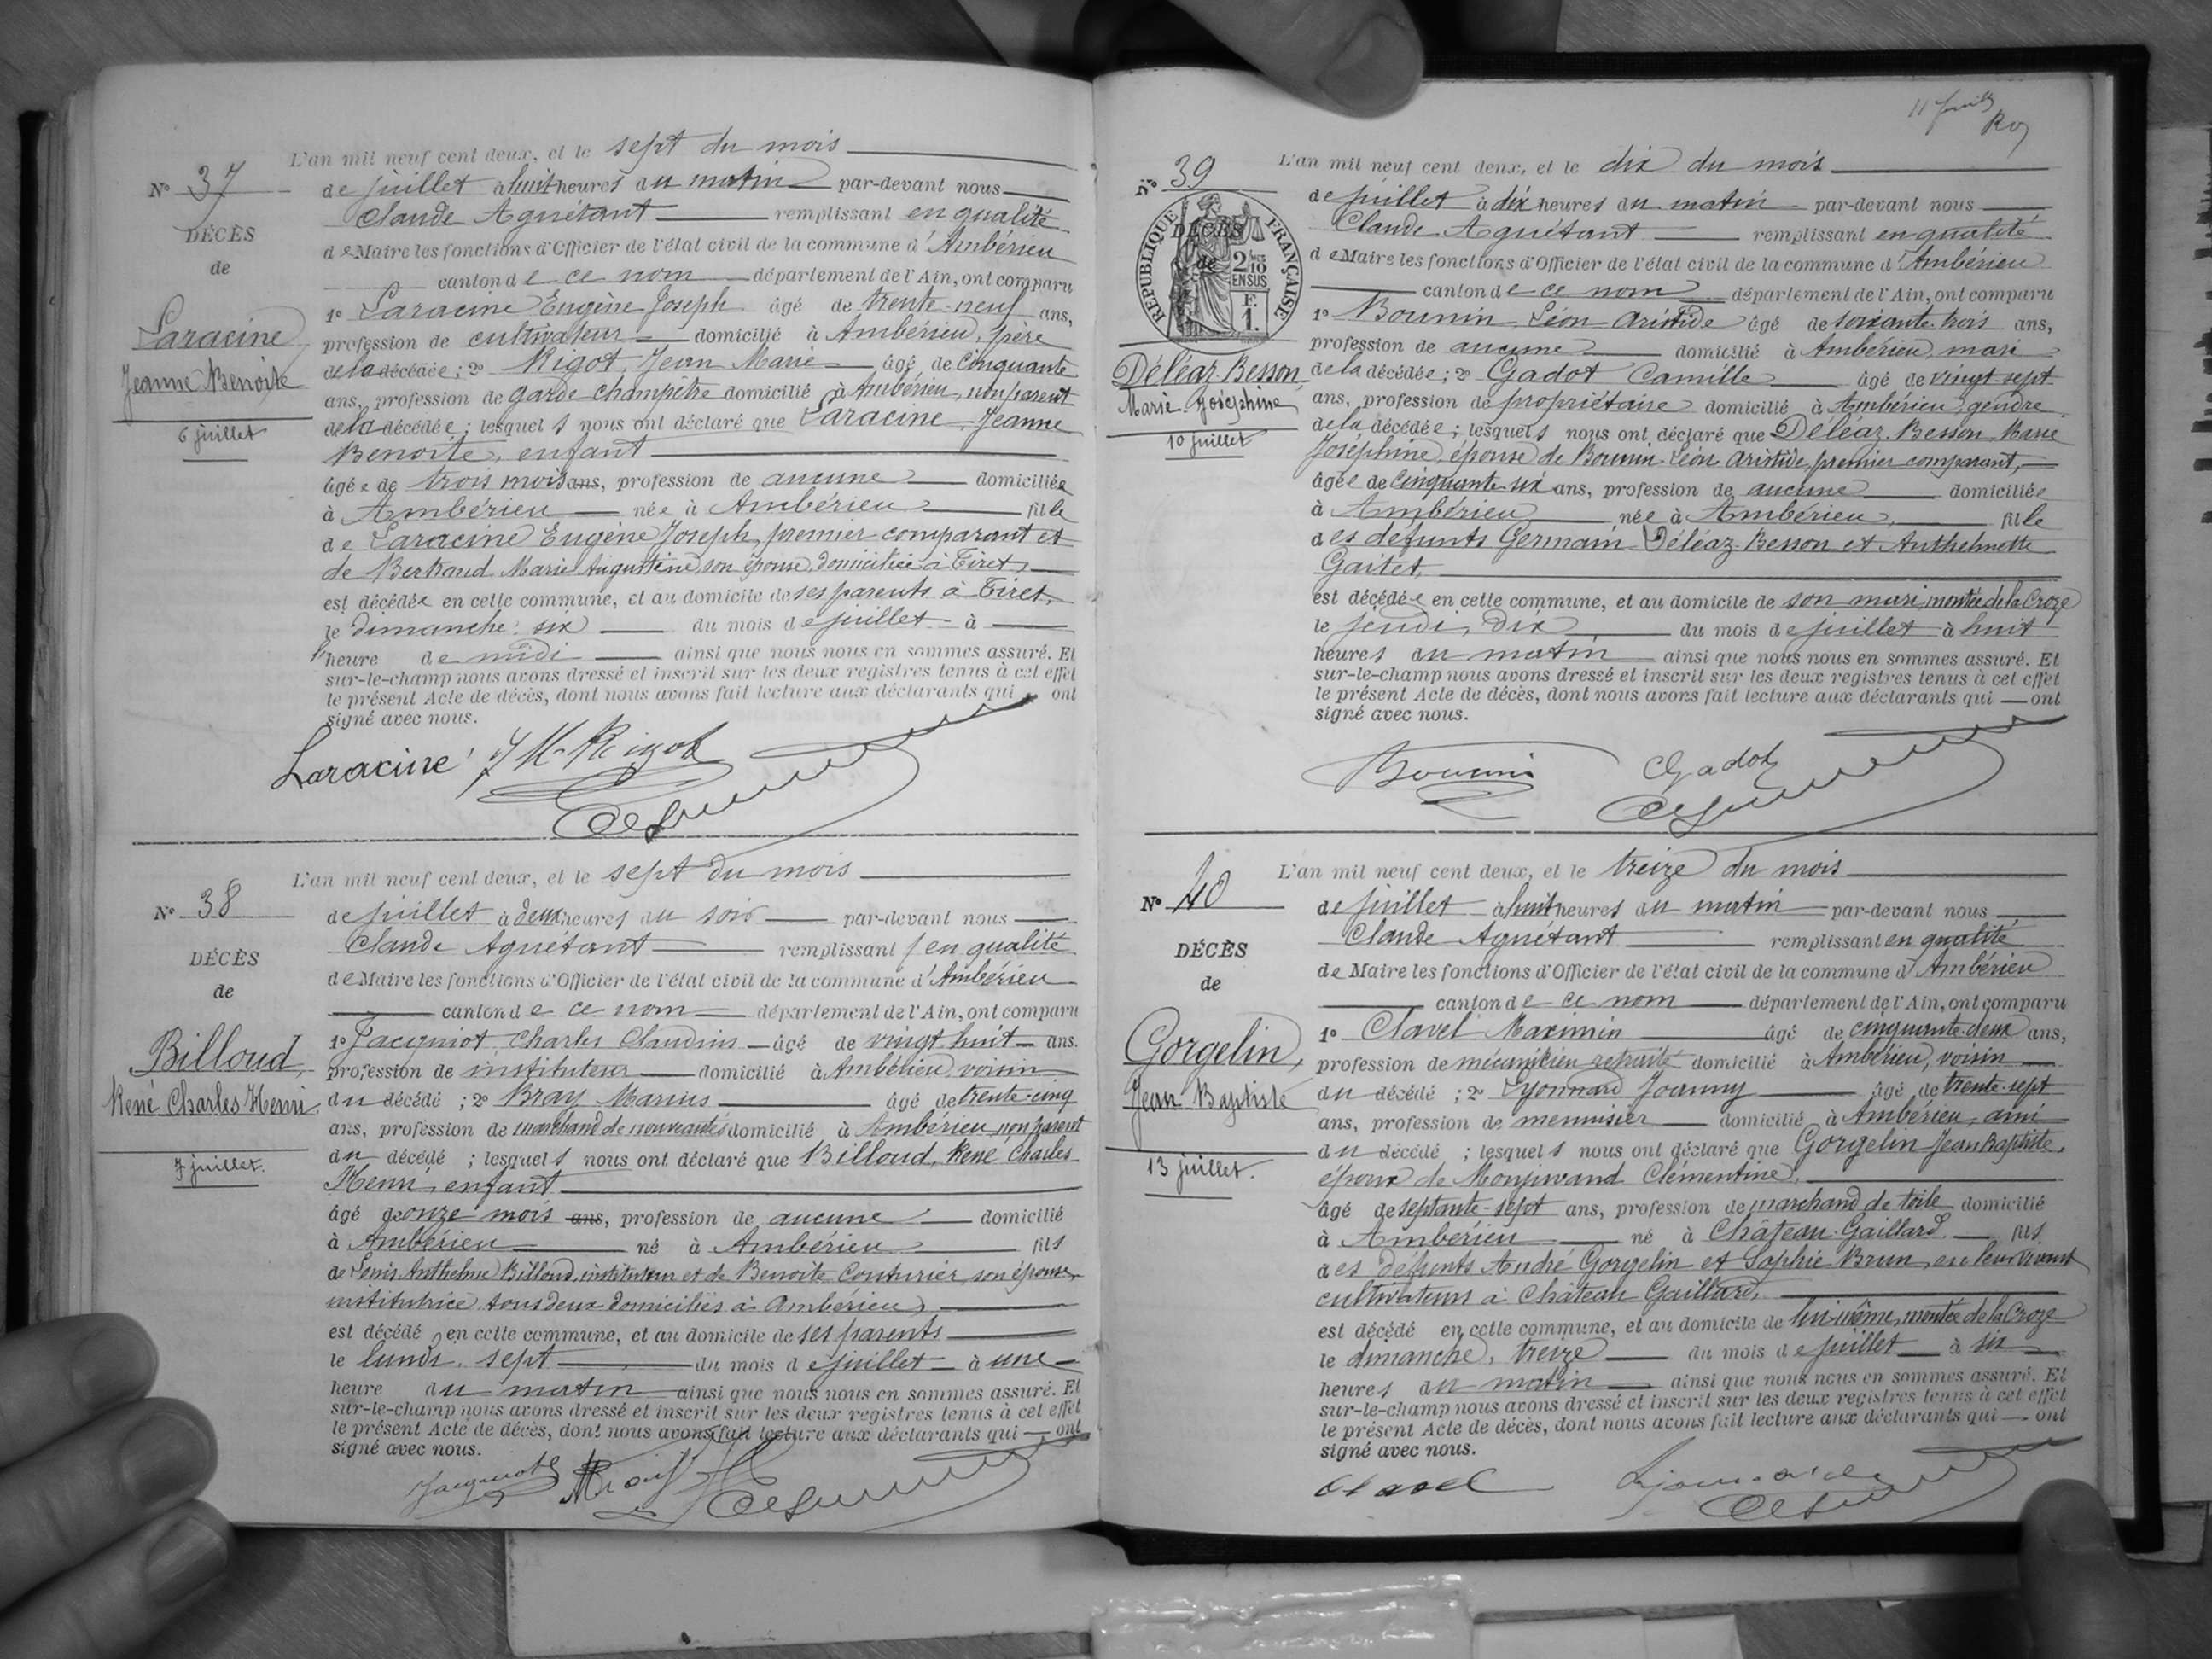 L'an mil neuf cent deux, et le sept du mois
N° 37
de juillet à huit heures du matin par-devant nous
Claude Aguétant remplissant en qualité
DÉCÈS
de Maire les fonctions d'Officier de l'état civil de la commune d'Ambérieu
de
canton de ce nom département de l'Ain, ont comparu
1° Laracine Eugène Joseph âgé de trente-neuf ans,
Laracine
profession de cultivateur domicilié à Ambérieu, père
Jeanne Benoite
de la décédée ; 2° Rigot, Jean Marie âgé de cinquante
ans, profession de garde champêtre domicilié à Ambérieu, non parent
6 juillet
de la décédée ; lesquels nous ont déclaré que Laracine, Jeanne
Benoite, enfant
âgée de trois mois ans, profession de aucune domiciliée
à Ambérieu née à Ambérieu fille
de Laracine Eugène Joseph, premier comparant et
de Bertrand Marie Augustine, son épouse, domiciliée à Tiret,
est décédée en cette commune, et au domicile de ses parents à Tiret,
le dimanche six du mois de juillet à
heure de midi ainsi que nous nous en sommes assuré. Et
sur-le-champ nous avons dressé et inscrit sur les deux registres tenus à cet effet
le présent Acte de décès, dont nous avons fait lecture aux déclarants qui ont
signé avec nous.
Laracine J M Rigot
L'an mil neuf cent deux, et le sept du mois
N° 38
de juillet à deux heures du soir par-devant nous
Claude Aguétant remplissant en qualité
DÉCÈS
de Maire les fonctions d'Officier de l'état civil de la commune d'Ambérieu
de
canton de ce nom département de l'Ain, ont comparu
1° Jacquiot, Charles Claudius âgé de vingt huit ans.
Billoud,
profession de instituteur domicilié à Ambérieu, voisin
René Charles Henri.
du décédé ; 2° Bray Marius âgé de trente-cinq
ans, profession de marchand de nouveautés domicilié à Ambérieu, non parent
7 juillet.
du décédé ; lesquels nous ont déclaré que Billoud, René Charles
Henri, enfant
âgé de onze mois ans, profession de aucune domicilié
à Ambérieu né à Ambérieu fils
de Louis Anthelme Billoud, instituteur et de Benoite Couturier, son épouse,
institutrice, tous deux domiciliés à Ambérieu,
est décédé en cette commune, et au domicile de ses parents
le lundi, sept du mois de juillet à une
heure du matin ainsi que nous nous en sommes assuré. Et
sur-le-champ nous avons dressé et inscrit sur les deux registres tenus à cet effet
le présent Acte de décès, dont nous avons fait lecture aux déclarants qui ont
signé avec nous.
11 juillet
Roy
L'an mil neuf cent deux, et le dix du mois
N° 39
de juillet à dix heures du matin par-devant nous
Claude Aguétant remplissant en qualité
RÉPUBLIQUE FRANÇAISE
DÉCÈS
de
2/10 EN SUS
F. 1.
de Maire les fonctions d'Officier de l'état civil de la commune d'Ambérieu
canton de ce nom département de l'Ain, ont comparu
1° Bounin, Léon Aristide âgé de soixante trois ans,
profession de aucune domicilié à Ambérieu, mari
Déléaz Besson,
Marie Joséphine
de la décédée ; 2° Gadot Camille âgé de vingt-sept
ans, profession de propriétaire domicilié à Ambérieu, gendre
10 juillet
de la décédée ; lesquels nous ont déclaré que Déléaz Besson, Marie
Joséphine, épouse de Bounin Léon Aristide, premier comparant,
âgée de cinquante-six ans, profession de aucune domiciliée
à Ambérieu née à Ambérieu, fille
des défunts Germain Déléaz Besson et Anthelmette
Gaitet,
est décédée en cette commune, et au domicile de son mari, montée de la Croze
le jeudi, dix du mois de juillet à huit
heures du matin ainsi que nous nous en sommes assuré. Et
sur-le-champ nous avons dressé et inscrit sur les deux registres tenus à cet effet
le présent Acte de décès, dont nous avons fait lecture aux déclarants qui ont
signé avec nous.
Bounin Gadot
L'an mil neuf cent deux, et le treize du mois
N° 40
de juillet à huit heures du matin par-devant nous
Claude Aguétant remplissant en qualité
DÉCÈS
de Maire les fonctions d'Officier de l'état civil de la commune d'Ambérieu
de
canton de ce nom département de l'Ain, ont comparu
1° Clavel Maximin âgé de cinquante-deux ans,
Gorgelin,
profession de mécanicien retraité domicilié à Ambérieu, voisin
Jean Baptiste
du décédé ; 2° Lyonnard Joanny âgé de trente-sept
ans, profession de menuisier domicilié à Ambérieu, ami
13 juillet.
du décédé ; lesquels nous ont déclaré que Gorgelin Jean Baptiste,
époux de Clémentine,
âgé de septante-sept ans, profession de marchand de toile domicilié
à Ambérieu né à Château-Gaillard fils
des défunts André Gorgelin et Sophie Brun, en leur vivant
cultivateurs à Château Gaillard,
est décédé en cette commune, et au domicile de lui-même, montée de la Croze
le dimanche, treize du mois de juillet à six
heures du matin ainsi que nous nous en sommes assuré. Et
sur-le-champ nous avons dressé et inscrit sur les deux registres tenus à cet effet
le présent Acte de décès, dont nous avons fait lecture aux déclarants qui ont
signé avec nous.
Clavel